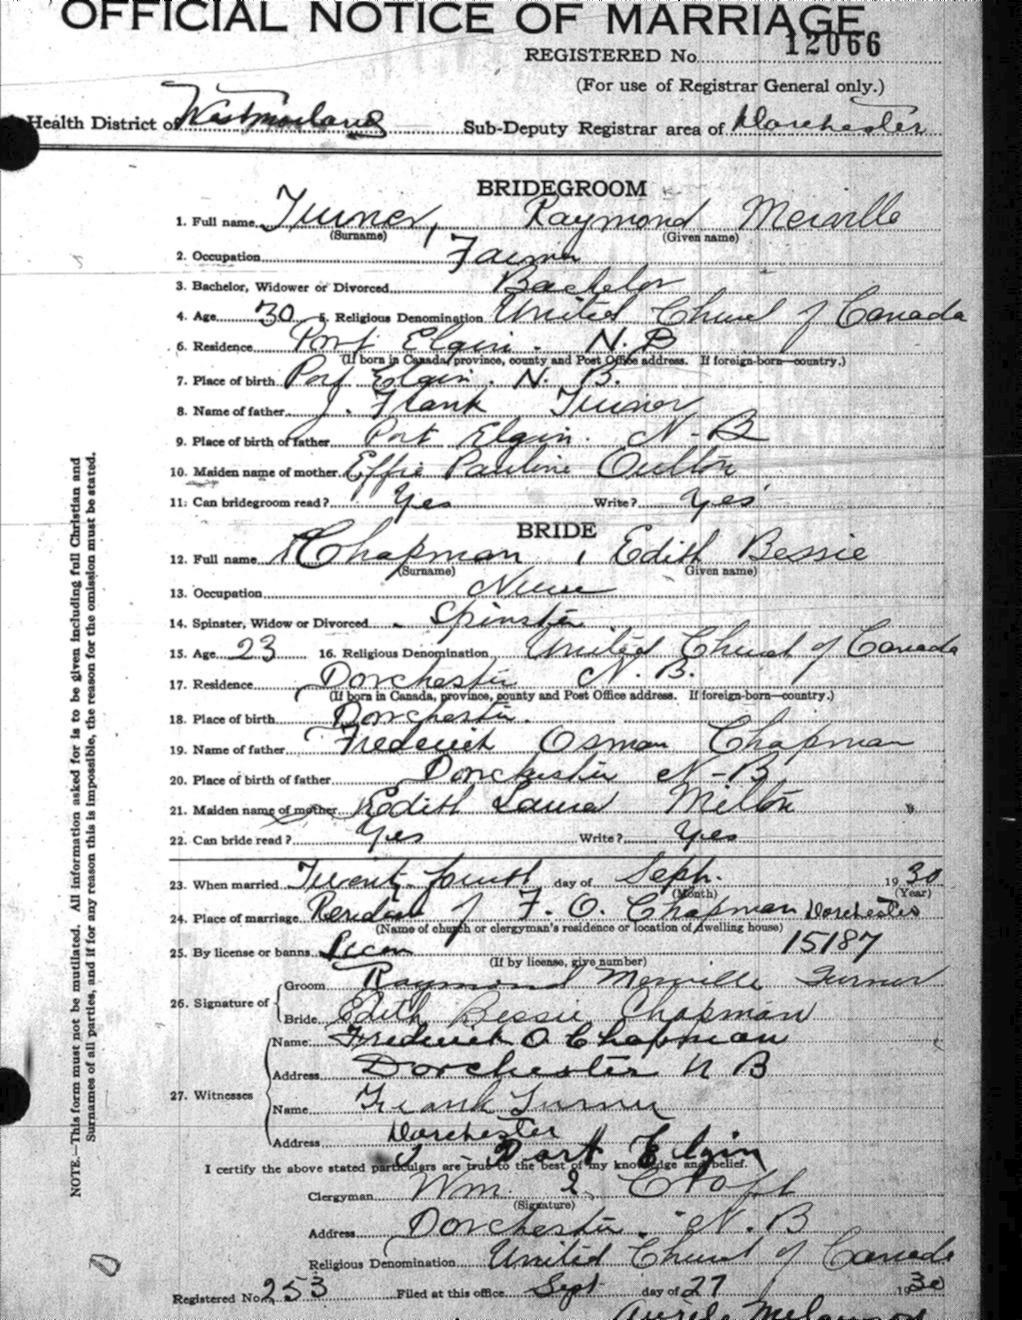 OFFICIAL NOTICE OF MARRIAGE
REGISTERED No. 12066
(For use of Registrar General only.)
Health District of Westmorland Sub-Deputy Registrar area of Dorchester
BRIDEGROOM
1. Full name Turner, Raymond Merville
(Surname) (Given name)
2. Occupation Farmer
3. Bachelor, Widower or Divorced Bachelor
4. Age 30 5. Religious Denomination United Church of Canada
6. Residence Port Elgin. N. B
(If born in Canada, province, county and Post Office address. If foreign-born—country.)
7. Place of birth Port Elgin. N. B.
8. Name of father J. Frank Turner
9. Place of birth of father Port Elgin. N-B
10. Maiden name of mother Effie Pauline Oulton
11: Can bridegroom read? Yes Write? Yes
BRIDE
12. Full name Chapman, Edith Bessie
(Surname) Given name)
13. Occupation Nurse
14. Spinster, Widow or Divorced Spinster
15. Age 23 16. Religious Denomination United Church of Canada
17. Residence Dorchester N. B.
(If born in Canada, province, county and Post Office address. If foreign-born—country.)
18. Place of birth Dorchester.
19. Name of father Frederick Osman Chapman
20. Place of birth of father Dorchester N-B
21. Maiden name of mother Edith Laura Milton
22. Can bride read? Yes Write? Yes
23. When married Twenty fourth day of Sept. 1930
(Month) (Year)
24. Place of marriage Residence of F. O. Chapman Dorchester
(Name of church or clergyman's residence or location of dwelling house)
25. By license or banns Licen 15187
(If by license, give number)
26. Signature of Groom Raymond Merville Turner
Bride Edith Bessie Chapman
27. Witnesses Name Frederick O Chapman
Address Dorchester N B
Name Frank Turner
Address Dorchester
Port Elgin
I certify the above stated particulars are true to the best of my knowledge and belief.
Clergyman Wm. Croft
(Signature)
Address Dorchester. N. B
Religious Denomination United Church of Canada
Registered No. 253 Filed at this office Sept day of 27 1930
NOTE.—This form must not be mutilated. All information asked for is to be given including full Christian and
Surnames of all parties, and if for any reason this is impossible, the reason for the omission must be stated.